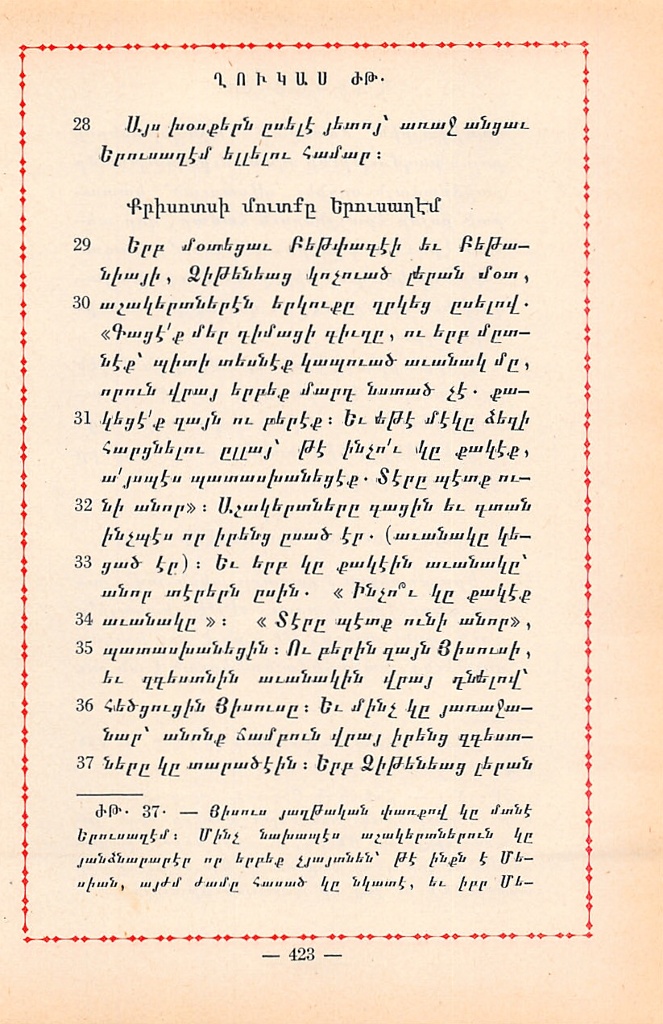 ՂՈՒԿԱՍ ԺԹ.
28 Այս խօսքերն ըսելէ յետոյ՝ առաջ անցաւ
Երուսաղէմ ելլելու համար ։
Քրիստոսի մուտքը Երուսաղէմ
29 Երբ մօտեցաւ Բեթփագէի եւ Բեթա–
նիայի, Ձիթենեաց կոչուած լերան մօտ,
30 աշակերտներէն երկուքը ղրկեց ըսելով.
«Գացէ՛ք մեր դիմացի գիւղը, ու երբ մըտ–
նէք՝ պիտի տեսնէք կապուած աւանակ մը,
որուն վրայ երբեք մարդ նստած չէ. քա–
31 կեցէ՛ք զայն ու բերէք ։ Եւ եթէ մէկը ձեզի
հարցնելու ըլլայ՝ թէ ինչո՛ւ կը քակէք,
ա՛յսպէս պատասխանեցէք. Տէրը պէտք ու–
32 նի անոր» ։ Աշակերտները գացին եւ գտան
ինչպէս որ իրենց ըսած էր. (աւանակը կե–
33 ցած էր) ։ Եւ երբ կը քակէին աւանակը՝
անոր տէրերն ըսին. « Ինչո՞ւ կը քակէք
34 աւանակը » ։ « Տէրը պէտք ունի անոր»,
35 պատասխանեցին ։ Ու բերին զայն Յիսուսի,
եւ զգեստնին աւանակին վրայ դնելով՝
36 հեծցուցին Յիսուսը ։ Եւ մինչ կը յառաջա–
նար՝ անոնք ճամբուն վրայ իրենց զգեստ–
37 ները կը տարածէին ։ Երբ Ձիթենեաց լերան
ԺԹ. 37. — Յիսուս յաղթական փառքով կը մտնէ
Երուսաղէմ ։ Մինչ նախապէս աշակերտներուն կը
յանձնարարէր որ երբեք չյայտնեն՝ թէ ինքն է Մե–
սիան, այժմ ժամը հասած կը նկատէ, եւ իբր Մե–
— 423 —